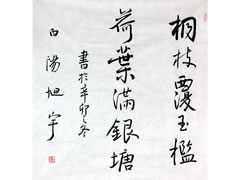 桐枝覆玉檻
荷葉滿銀塘
書於辛卯冬
白陽旭宇